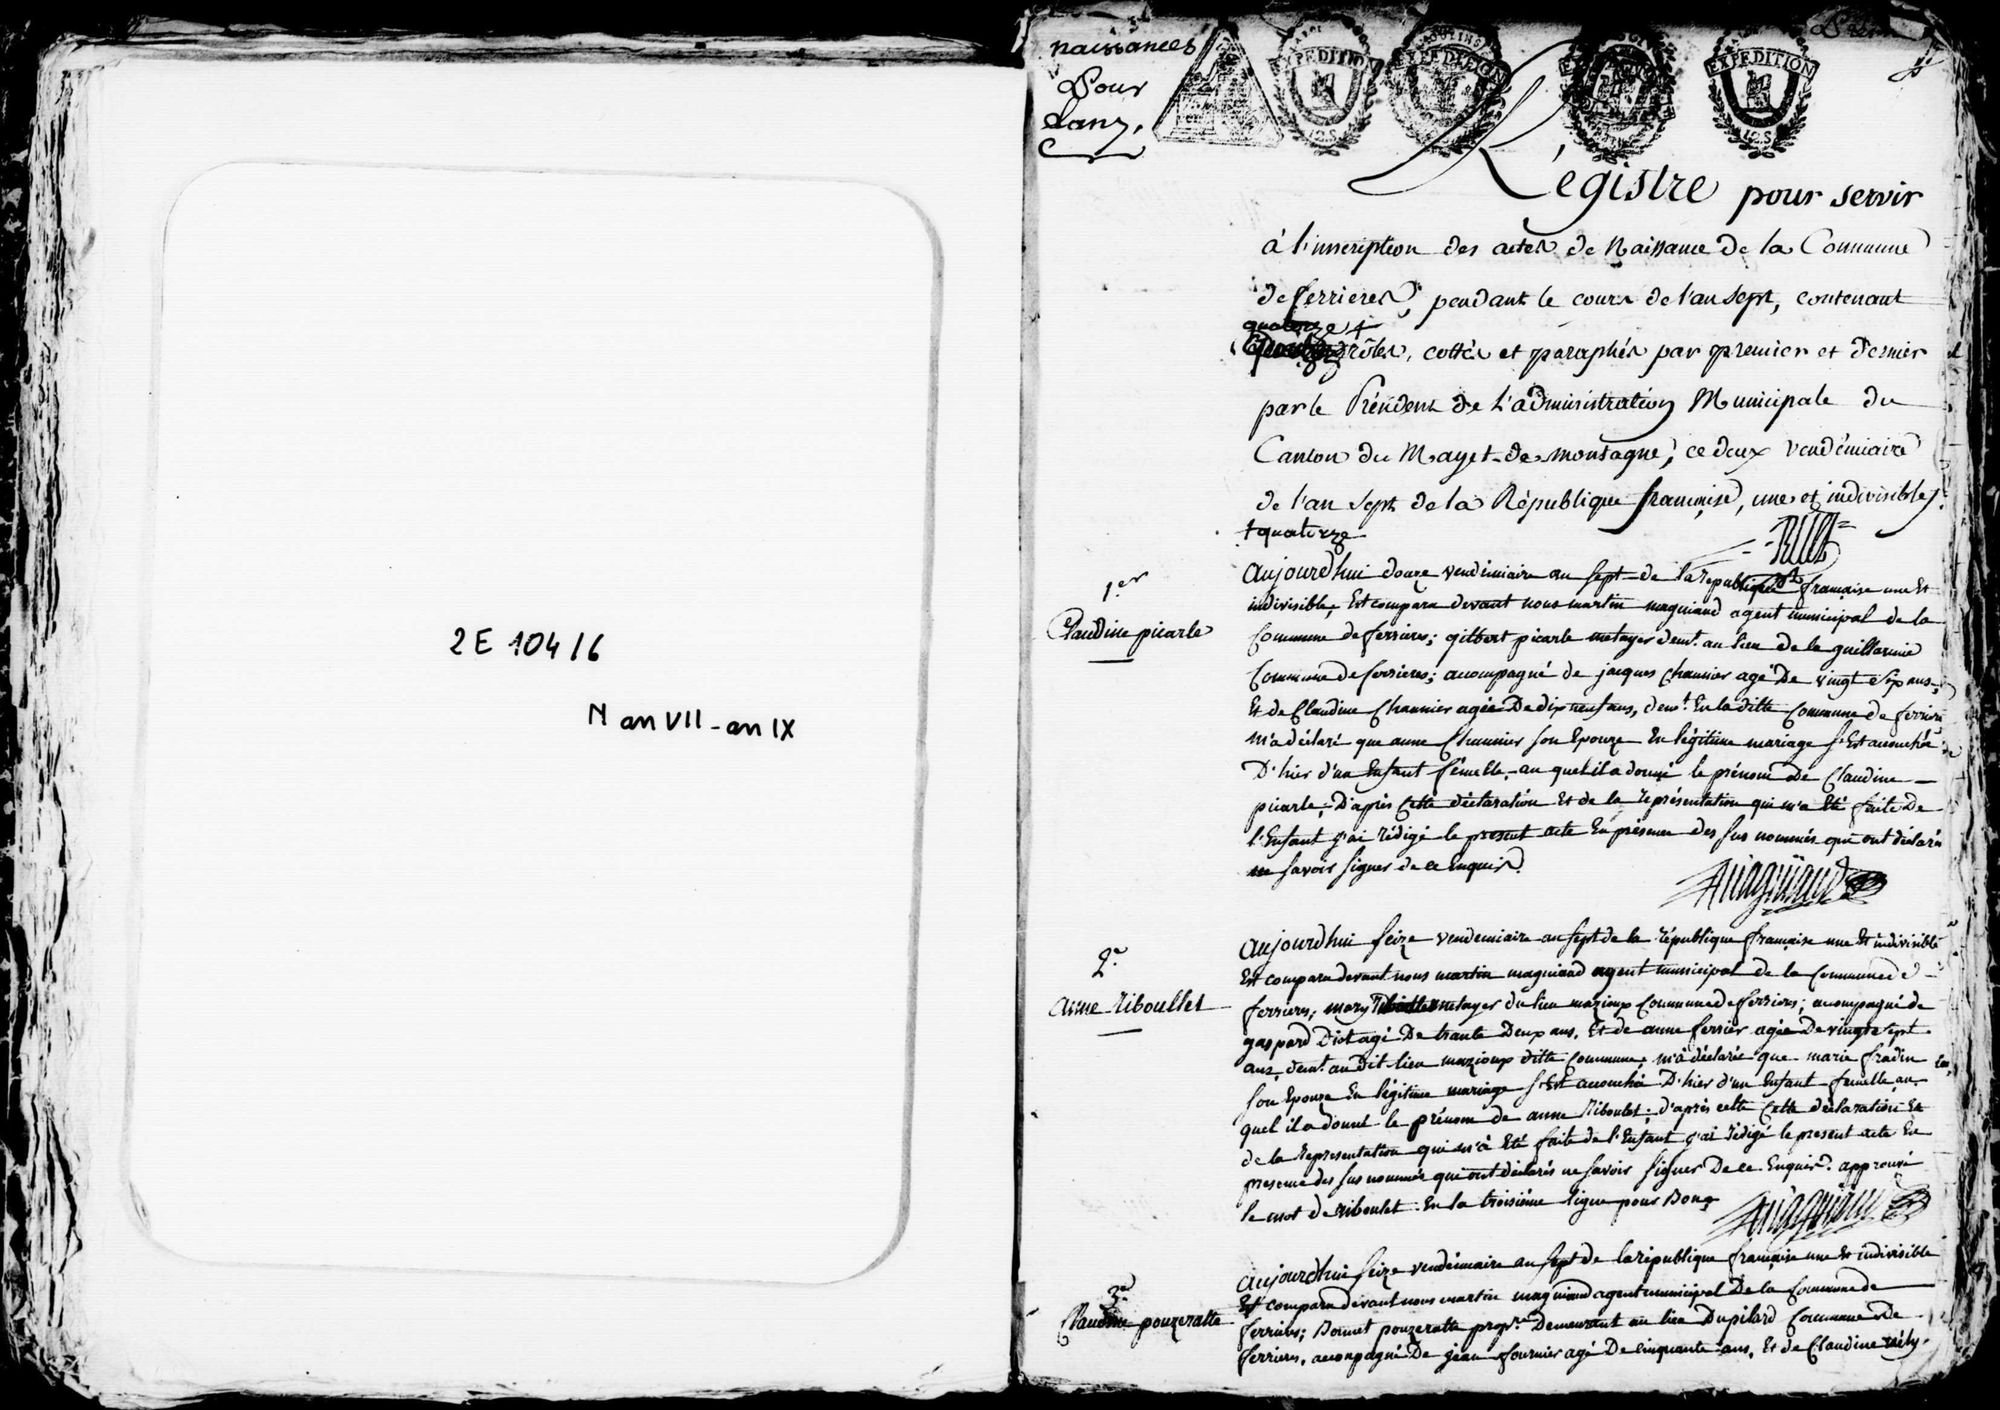 2 E 104 / 6
N an VII - an IX
naissances
Pour
Lan 7.
EXPEDITION
EXPEDITION
EXPEDITION
12.S
12.S
Régistre pour servir
à l'inscription des actes de Naissance de la Commune
de ferrieres, pendant le cours de l'an sept, contenant
quatorze +
rôles, cottés et paraphés par premier et dernier
par le Président de L'administration Municipale du
Canton du Mayet-de-montagne, ce deux vendémiaire
de l'an sept de la République française, une et indivisible
+ quatorze
1.er
Claudine picarle
aujourdhui douze vendémiaire an sept de la republique française une Et
indivisible, Est compara devant nous martin maguiaud agent municipal de la
Commune de ferrieres; gilbert picarle metayer demt. au lieu de la guillermie
Commune de ferrieres; acompagné de jacques Chaunier agé De vingt Sept ans,
Et de Claudine Chaunier agée De dix neuf ans, demt. En la ditte Commune de ferrieres
m'a déclaré que anne Chaunier son Epouze En légitime mariage s'Est acouchée
D'hier d'un Enfant fémelle, au quel il a donné le prénom De Claudine
picarle; D'après Cette déclaration Et de la représentation qui m'a Eté faite De
l'Enfant j'ai rédigé le present acte En présence des sus nommés qui ont déclarés
ne savoir signer de ce Enquis.
Maguiaud
2.e
anne riboullet
aujourdhui seize vendemiaire an sept de la république française une Et indivisible
Est compara devant nous martin maguiaud agent municipal de la Commune de
ferrieres, mary metayer du lieu mazioux Commune de ferrieres; acompagné de
gaspard Diot agé De trante Deux ans, Et de anne ferrier agée De vingt Sept
ans, demt. au dit lieu mazioux ditte Commune, m'a déclaré que marie fradin
son Epouze En légitime mariage s'Est acouchée D'hier d'un Enfant femelle au
quel il a donné le prénom de anne Riboulet; d'après cette Cette déclaration Et
de la Representation qui m'a Eté faite de l'Enfant j'ai rédigé le present acte En
presence des sus nommés qui ont déclarés ne savoir signer De ce Enquis. approuvé
le mot de riboulet En la troisième ligne pour Bon
Maguiaud
3.e
Claudine pouzeratte
aujourdhui seize vendémiaire an sept de la république française une Et indivisible
Est compara devant nous martin maguiaud agent municipal De la Commune de
ferrieres; Bonnet pouzeratte propre. Demeurant au lieu Dupilard Commune De
ferrieres, acompagné De jean fournier agé De cinquante ans, Et de Claudine